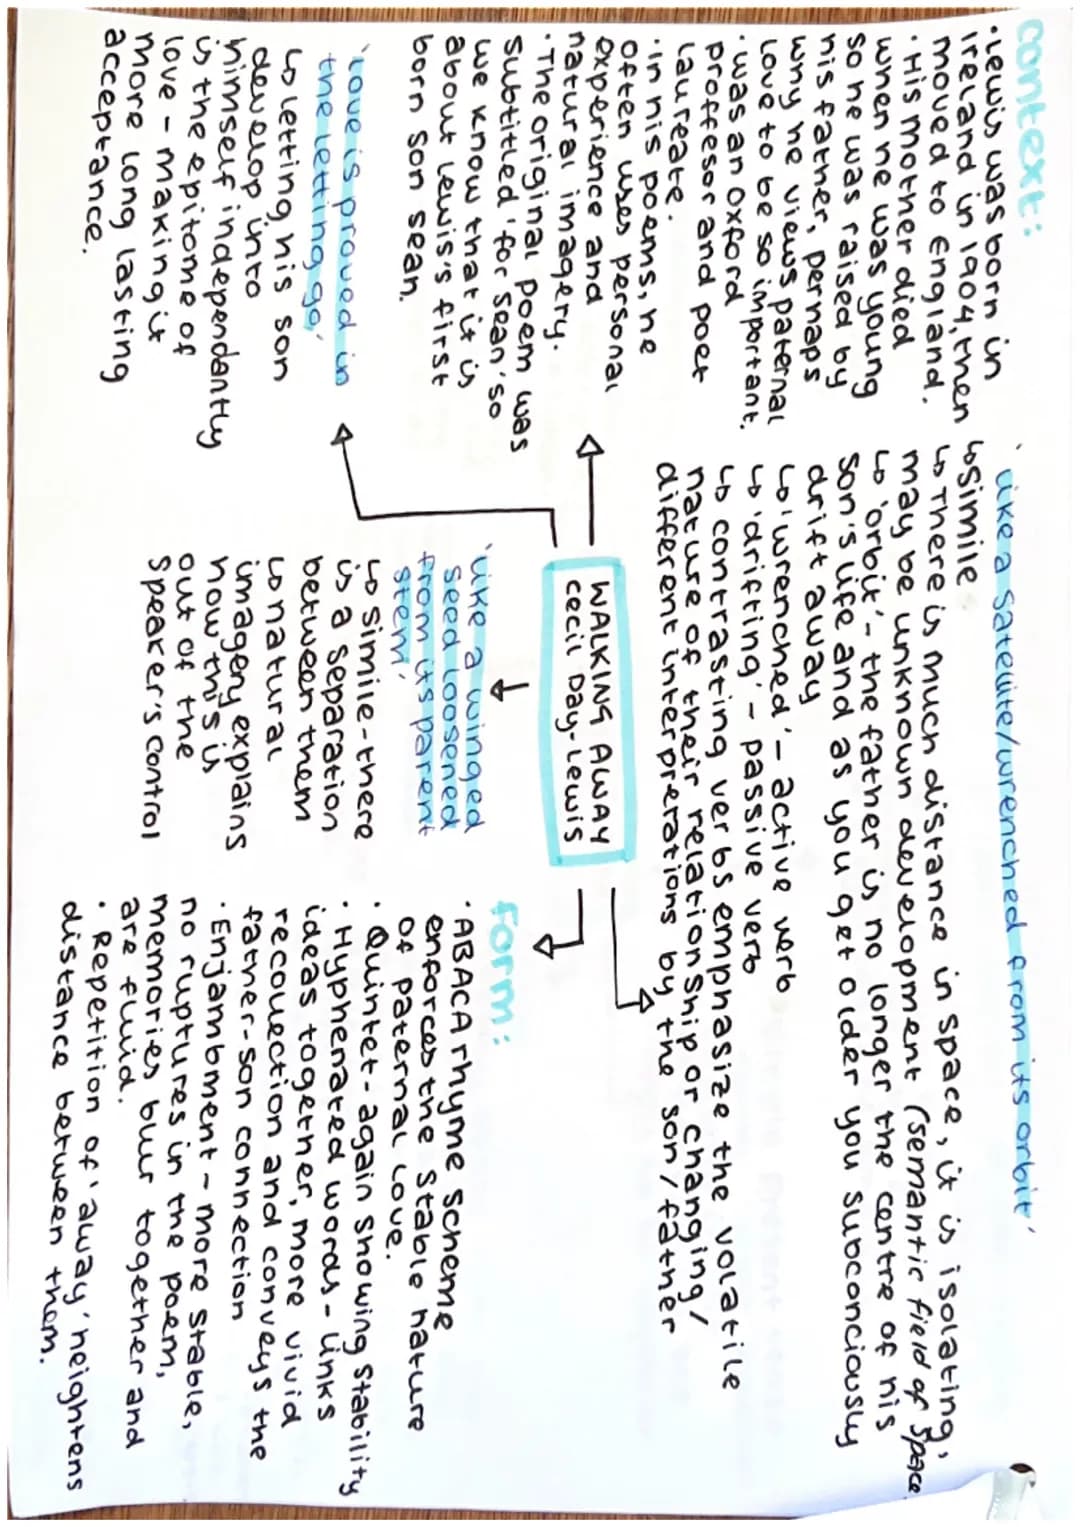 context:
• Lewis was born in
ireland in 1904, then
moved to England.
• His mother died
when he was young
so he was raised by
his father, perhaps
why he views paternal
love to be so important.
• was an oxford
proffesor and poet
laureate.
• In his poems, he
often uses personal
experience and
natural imagery.
• The original poem was
subtitled 'for Sean' so
we know that it is
about Lewis's first
born son sean.
'like a satellite/wrenched from its orbit'
↳ Simile
↳ There is much distance in space, it is isolating,
may be unknown development (semantic field of space
↳ 'orbit' - the father is no longer the centre of his
son's life and as you get older you subconciously
drift away
↳ 'wrenched' - active verb
↳ 'drifting' - passive verb
↳ contrasting verbs emphasize the volatile
nature of their relationship or changing/
different interpretations by the son/father
WALKING AWAY
Cecil Day-Lewis
'love is proved in
the letting go'
↳ letting his son
develop into
himself independantly
is the epitome of
love - making it
more long lasting
acceptance.
'like a winged
seed loosened
from its parent
stem'
↳ Simile - there
is a separation
between them
↳ natural
imagery explains
how this is
out of the
speaker's control
form:
• ABACA rhyme scheme
enforces the stable nature
of paternal love.
• Quintet - again showing stability
• Hyphenated words - links
ideas together, more vivid
recollection and conveys the
father-son connection
• Enjambment - more stable,
no ruptures in the poem,
memories blur together and
are fluid.
• Repetition of 'away' heightens
distance between them.